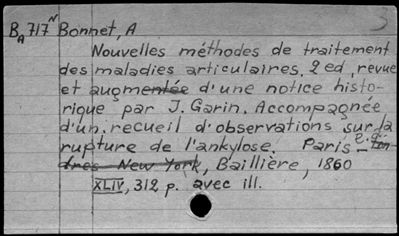 BA717N Bonnet, A
Nouvelles méthodes de traitement
des maladies articulaires. 2 ed, revue
et augmentée d'une notice histo-
rique par J. Garin. Accompagnée
d'un recueil d'observations sur la
rupture de l'ankylose. Paris
New York, Baillière, 1860
XLIV, 312 p. avec ill.